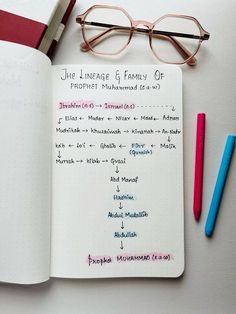 The Lineage & Family of
Prophet Muhammad (s.a.w)
Ibrahim (a.s) → Ismail (a.s) - - - - →
← Elias ← Muder ← Nizar ← Maad ← Adnan
Mudrikah → Khuzaimah → Kinanah → An-Nadr
Ka'b ← Lo'i ← Ghalib ← Fihr ← Malik
(Quraish)
Murrah → Kilab → Qusai
↓
Abd Manaf
↓
Hashim
↓
Abdul Mutallib
↓
Abdullah
↓
Prophet MUHAMMAD (s.a.w)